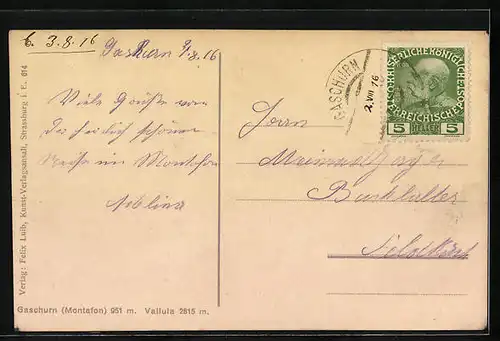 6. 3.8.16
Gaschurn 1/8.16
Viele Grüße von
der herrlich schönen
Reise im Montafon
Herrn
Buchhalter
Feldkirch
GASCHURN
2.VIII.16
KAISERLICHE KÖNIGLICHE ÖSTERREICHISCHE POST
5 HELLER 5
Verlag: Felix Luib, Kunst-Verlagsanstalt, Strassburg i. E. 614
Gaschurn (Montafon) 951 m. Vallula 2815 m.